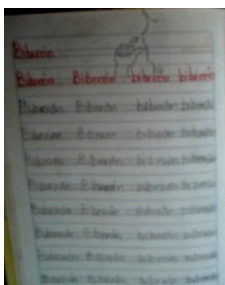 Biberón
Biberón Biberón biberón biberón
Biberón Biberón biberón biberón
Biberón Biberón biberón biberón
Biberón Biberón biberón biberón
Biberón Biberón biberón biberón
Biberón Biberón biberón biberón
Biberón Biberón biberón biberón
Biberón Biberón biberón biberón
Biberón Biberón biberón biberón